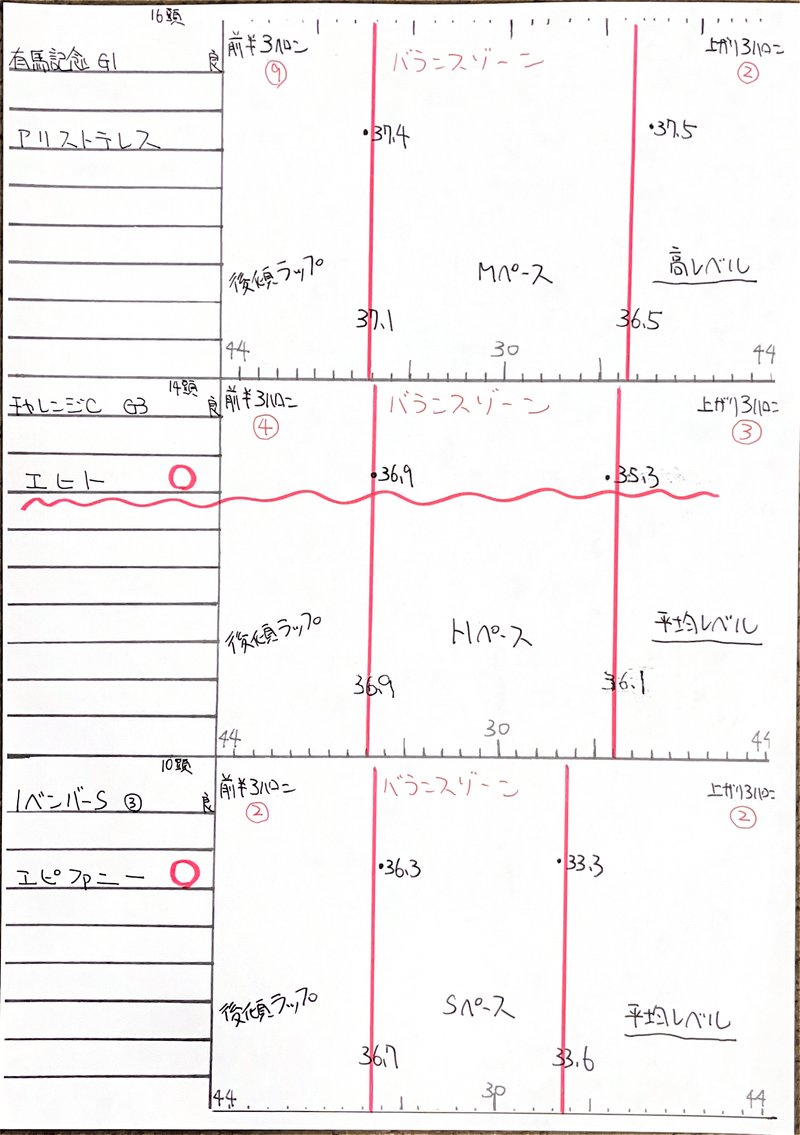 16頭
有馬記念 G1 良 前半3ハロン バランスゾーン 上がり3ハロン
⑨ ②
アリストテレス ・37.4 ・37.5
後傾ラップ Mペース 高レベル
37.1 36.5
44 30 44
14頭
チャレンジC G3 良 前半3ハロン バランスゾーン 上がり3ハロン
④ ③
エヒト ○ ・36.9 ・35.3
後傾ラップ Hペース 平均レベル
36.9 36.1
44 30 44
10頭
ノベンバーS ③ 良 前半3ハロン バランスゾーン 上がり3ハロン
② ②
エピファニー ○ ・36.3 ・33.3
後傾ラップ Sペース 平均レベル
36.7 33.6
44 30 44